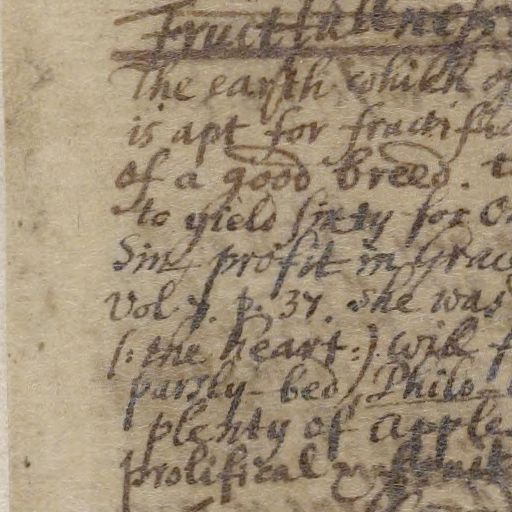 Fructfullness
The earth which o
is apt for fructific
of a good breed. t
to yield sixty for O
Sin- profit in Grac
Vol. 7. p. 37. She was
(: the heart :) will f
parsly-bed, Philo-
plenty of Apple
prolifical